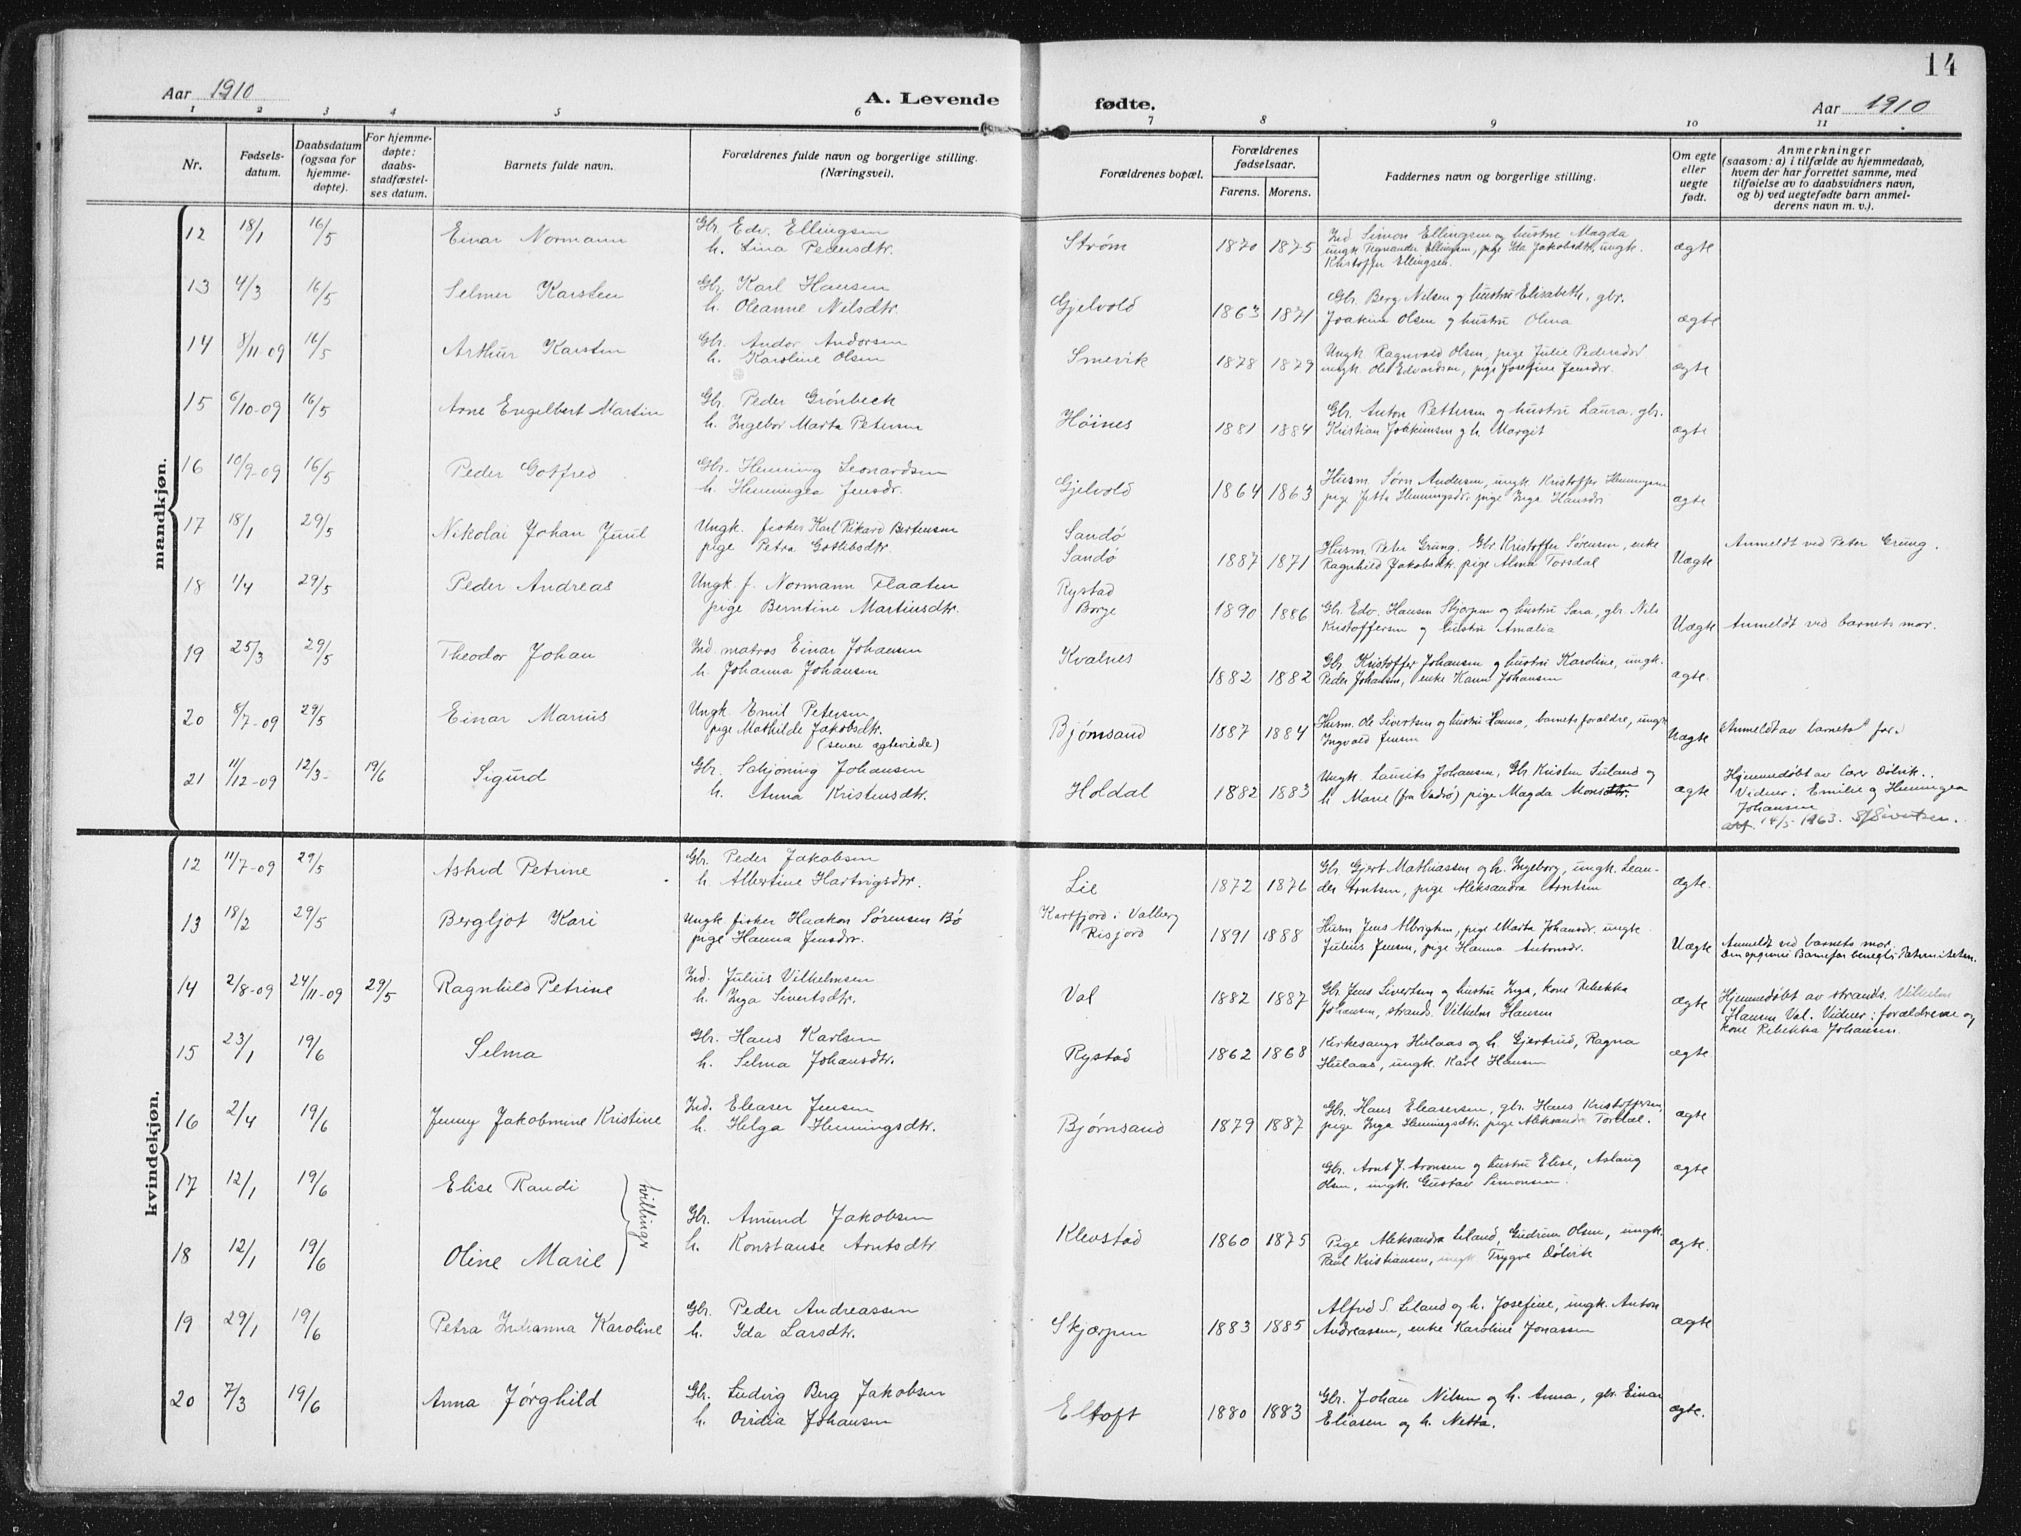 14
Aar 1910 A. Levende fødte. Aar 1910
1 2 3 4 5 6 7 8 9 10 11
Nr.
Fødsels-
datum.
Daabsdatum
(ogsaa for
hjemme-
døpte).
For hjemme-
døpte:
daabs-
stadfæstel-
ses datum.
Barnets fulde navn.
Forældrenes fulde navn og borgerlige stilling.
(Næringsvei).
Forældrenes bopæl.
Forældrenes
fødselsaar.
Farens. Morens.
Faddernes navn og borgerlige stilling.
Om egte
eller
uegte
født.
Anmerkninger
(saasom: a) i tilfælde av hjemmedaab,
hvem der har forrettet samme, med
tilføielse av to daabsvidners navn,
og b) ved uegtefødte barn anmel-
derens navn m. v.).
mandkjøn.
12 18/1 16/5 Einar Normann
Gbr. Edv. Ellingsen
h. Lina Pedersdtr.
Strøm 1870 1875
Ind. Simon Ellingsen og hustru Magda
ungk. Tegnander Ellingsen, pige Ida Jakobsdtr, ungk.
Kristoffer Ellingsen.
ægte
13 4/3 16/5 Selmer Karsten
Gbr. Karl Hansen
h. Oleanne Nilsdtr.
Gjelvold 1863 1871
Gbr. Berg Nilsen og hustru Elisabeth, gbr.
Joakim Olsen og hustru Olina
ægte
14 8/11-09 16/5 Arthur Karsten
Gbr. Andor Andorsen
h. Karoline Olsen
Smevik 1878 1879
Ungk. Ragnvald Olsen, pige Julie Pedersdtr
ungk. Ole Edvardsen, pige Josefine Jensdtr.
ægte
15 6/10-09 16/5 Arne Engelbert Martin
Gbr. Peder Grønbeck
h. Ingebor Marta Petersen
Høines 1881 1884
Gbr. Anton Pettersen og hustru Laura, gbr.
Kristian Joakimsen og h. Margit
ægte
16 10/9-09 16/5 Peder Gotfred
Gbr. Henning Leonardsen
h. Henningea Jensdr.
Gjelvold 1864 1863
Husm. Sørn Andersen, ungk. Kristoffer Henningsen
pige Jetta Henningsdtr. pige Inga Hansdr
ægte
17 18/1 29/5 Nikolai Johan Juul
Ungk. fisker Karl Rikard Bertensen
pige Petra Gotlibsdtr.
Sandø
Sandø
1887 1871
Husm. Peter Grung. Gbr. Kristoffer Sørensen, enke
Ragnhild Jakobsdtr. pige Alma Torsdal
Uægte
Anmeldt ved Peter Grung.
18 1/4 29/5 Peder Andreas
Ungk. f. Normann Flaaten
pige Berntine Martinsdtr.
Rystad
Borge
1890 1886
Gbr. Edv. Hansen Skjærpen og hustru Sara, gbr. Nils
Kristoffersen og hustru Amalia
Uægte
Anmeldt ved barnets mor.
19 25/3 29/5 Theodor Johan
Ind. matros Einar Johansen
h. Johanna Johansen
Kvalnes 1882 1882
Gbr. Kristoffer Johansen og hustru Karoline, ungk.
Peder Johansen, enke Hanna Johansen
ægte.
20 8/7-09 29/5 Einar Marius
Ungk. Emil Petersen
pige Mathilde Jakobsdtr.
(senere egteviede)
Bjørnsand 1887 1884
Husm. Ole Sivertsen og hustru Hanna, barnets forældre, ungk.
Ingvald Jensen
Uægte
Anmeldt av barnets far.
21 11/12-09 12/3- 19/6 Sigurd
Gbr. Schjøning Johansen
h. Anna Kristensdtr.
Holdal 1882 1883
Ungk. Laurits Johansen, Gbr. Kristen Liland og
h. Marie (fra Vadsø) pige Magda Monsdtr.
ægte
Hjemmedøbt av lærer Dølvik.
Vidner: Emilie og Henningea
Johansen
14/5-1963. Sivertsen.
kvindekjøn.
12 11/7-09 29/5 Astrid Petrine
Gbr. Peder Jakobsen
h. Albertine Hartvigsdtr.
Lie 1872 1876
Gbr. Gjert Mathiassen og h. Ingeborg, ungk. Lean-
der Arntsen, pige Aleksandra Arntsen
ægte.
13 18/2 29/5 Bergljot Kari
Ungk. fisker Haakon Sørensen Bø
pige Hanna Jensdr.
Kartfjord i Valberg
Risjord
1891 1888
Husm. Jens Albrigtsen, pige Marta Johansdr. ungk.
Julius Jensen, pige Hanna Antonsdr.
Uægte
Anmeldt ved barnets mor.
Den opgivne Barnefar benegter Paterniteten.
14 2/8-09 24/11-09 29/5 Ragnhild Petrine
Ind. Julius Vilhelmsen
h. Inga Sivertsdtr.
Val 1882 1887
Gbr. Jens Sivertsen og hustru Inga, kone Rebekka
Johansen, strands. Vilhelm Hansen
ægte
Hjemmedøbt av strands. Vilhelm
Hansen Val. Vidner: forældrene og
kone Rebekka Johansen.
15 23/1 19/6 Selma
Gbr. Hans Karlsen
h. Selma Johansdtr.
Rystad 1862 1868
Kirkesangr Hulaas og h. Gjertrud, Ragna
Hulaas, ungk. Karl Hansen
ægte
16 2/4 19/6 Jenny Jakobmine Kristine
Ind. Eleaser Jensen
h. Helga Henningsdtr.
Bjørnsand 1879 1887
Gbr. Hans Eleasersen, gbr. Hans Kristoffersen,
pige Inga Henningsdtr. pige Aleksandra Torsdal.
ægte
17 12/1 19/6 Elise Randi
Gbr. Arnt J. Aronsen og hustru Elise, Aslaug
Olsen, ungk. Gustav Simonsen.
ægte
tvillinger
Gbr. Amund Jakobsen
h. Konstanse Arntsdtr
Klevstad 1860 1875
18 12/1 19/6 Oline Marie
Pige Aleksandra Liland, Gudrun Olsen, ungk.
Paul Kristiansen, ungk. Trygve Dølvik
ægte.
19 29/1 19/6 Petra Johanna Karoline
Gbr. Peder Andreassen
h. Ida Larsdtr.
Skjærpen 1883 1885
Alfred S. Liland og h. Josefine, ungk. Anton
Andreassen, enke Karoline Jonassen
ægte
20 7/3 19/6 Anna Jørghild
Gbr. Ludvig Berg Jakobsen
h. Ovidia Johansen
Eltoft 1880 1883
Gbr. Johan Nilsen og h. Anna, gbr. Einar
Eliasen og h. Netta.
ægte.